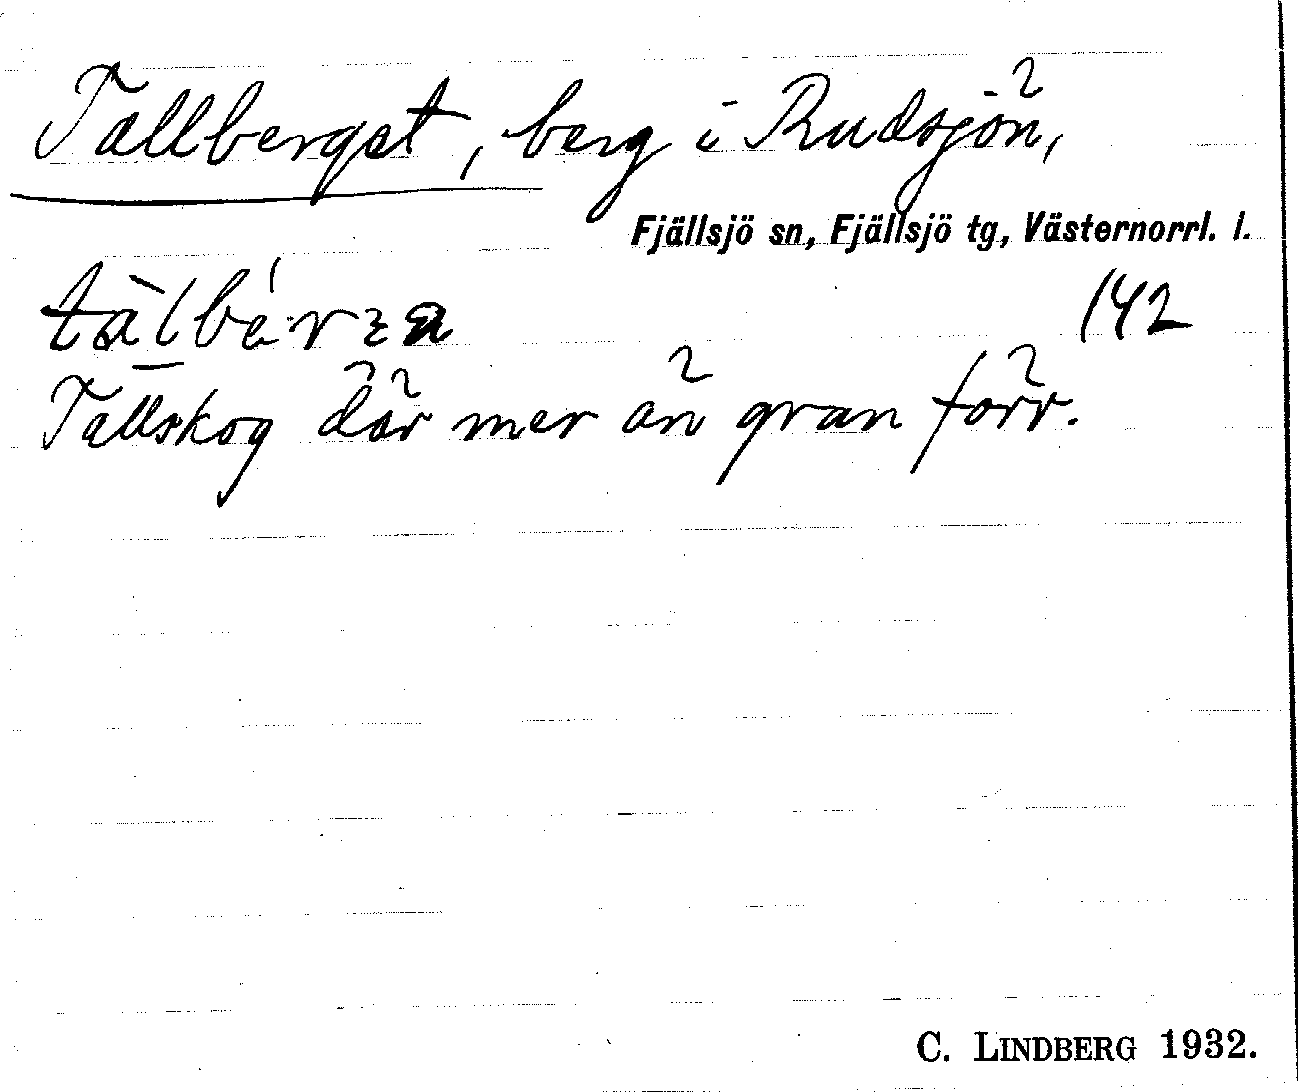 Tallberget, berg i Rudsjön,
Fjällsjö sn, Fjällsjö tg, Västernorrl. l.
142
Tallskog där mer än gran förr.
C. LINDBERG 1932.